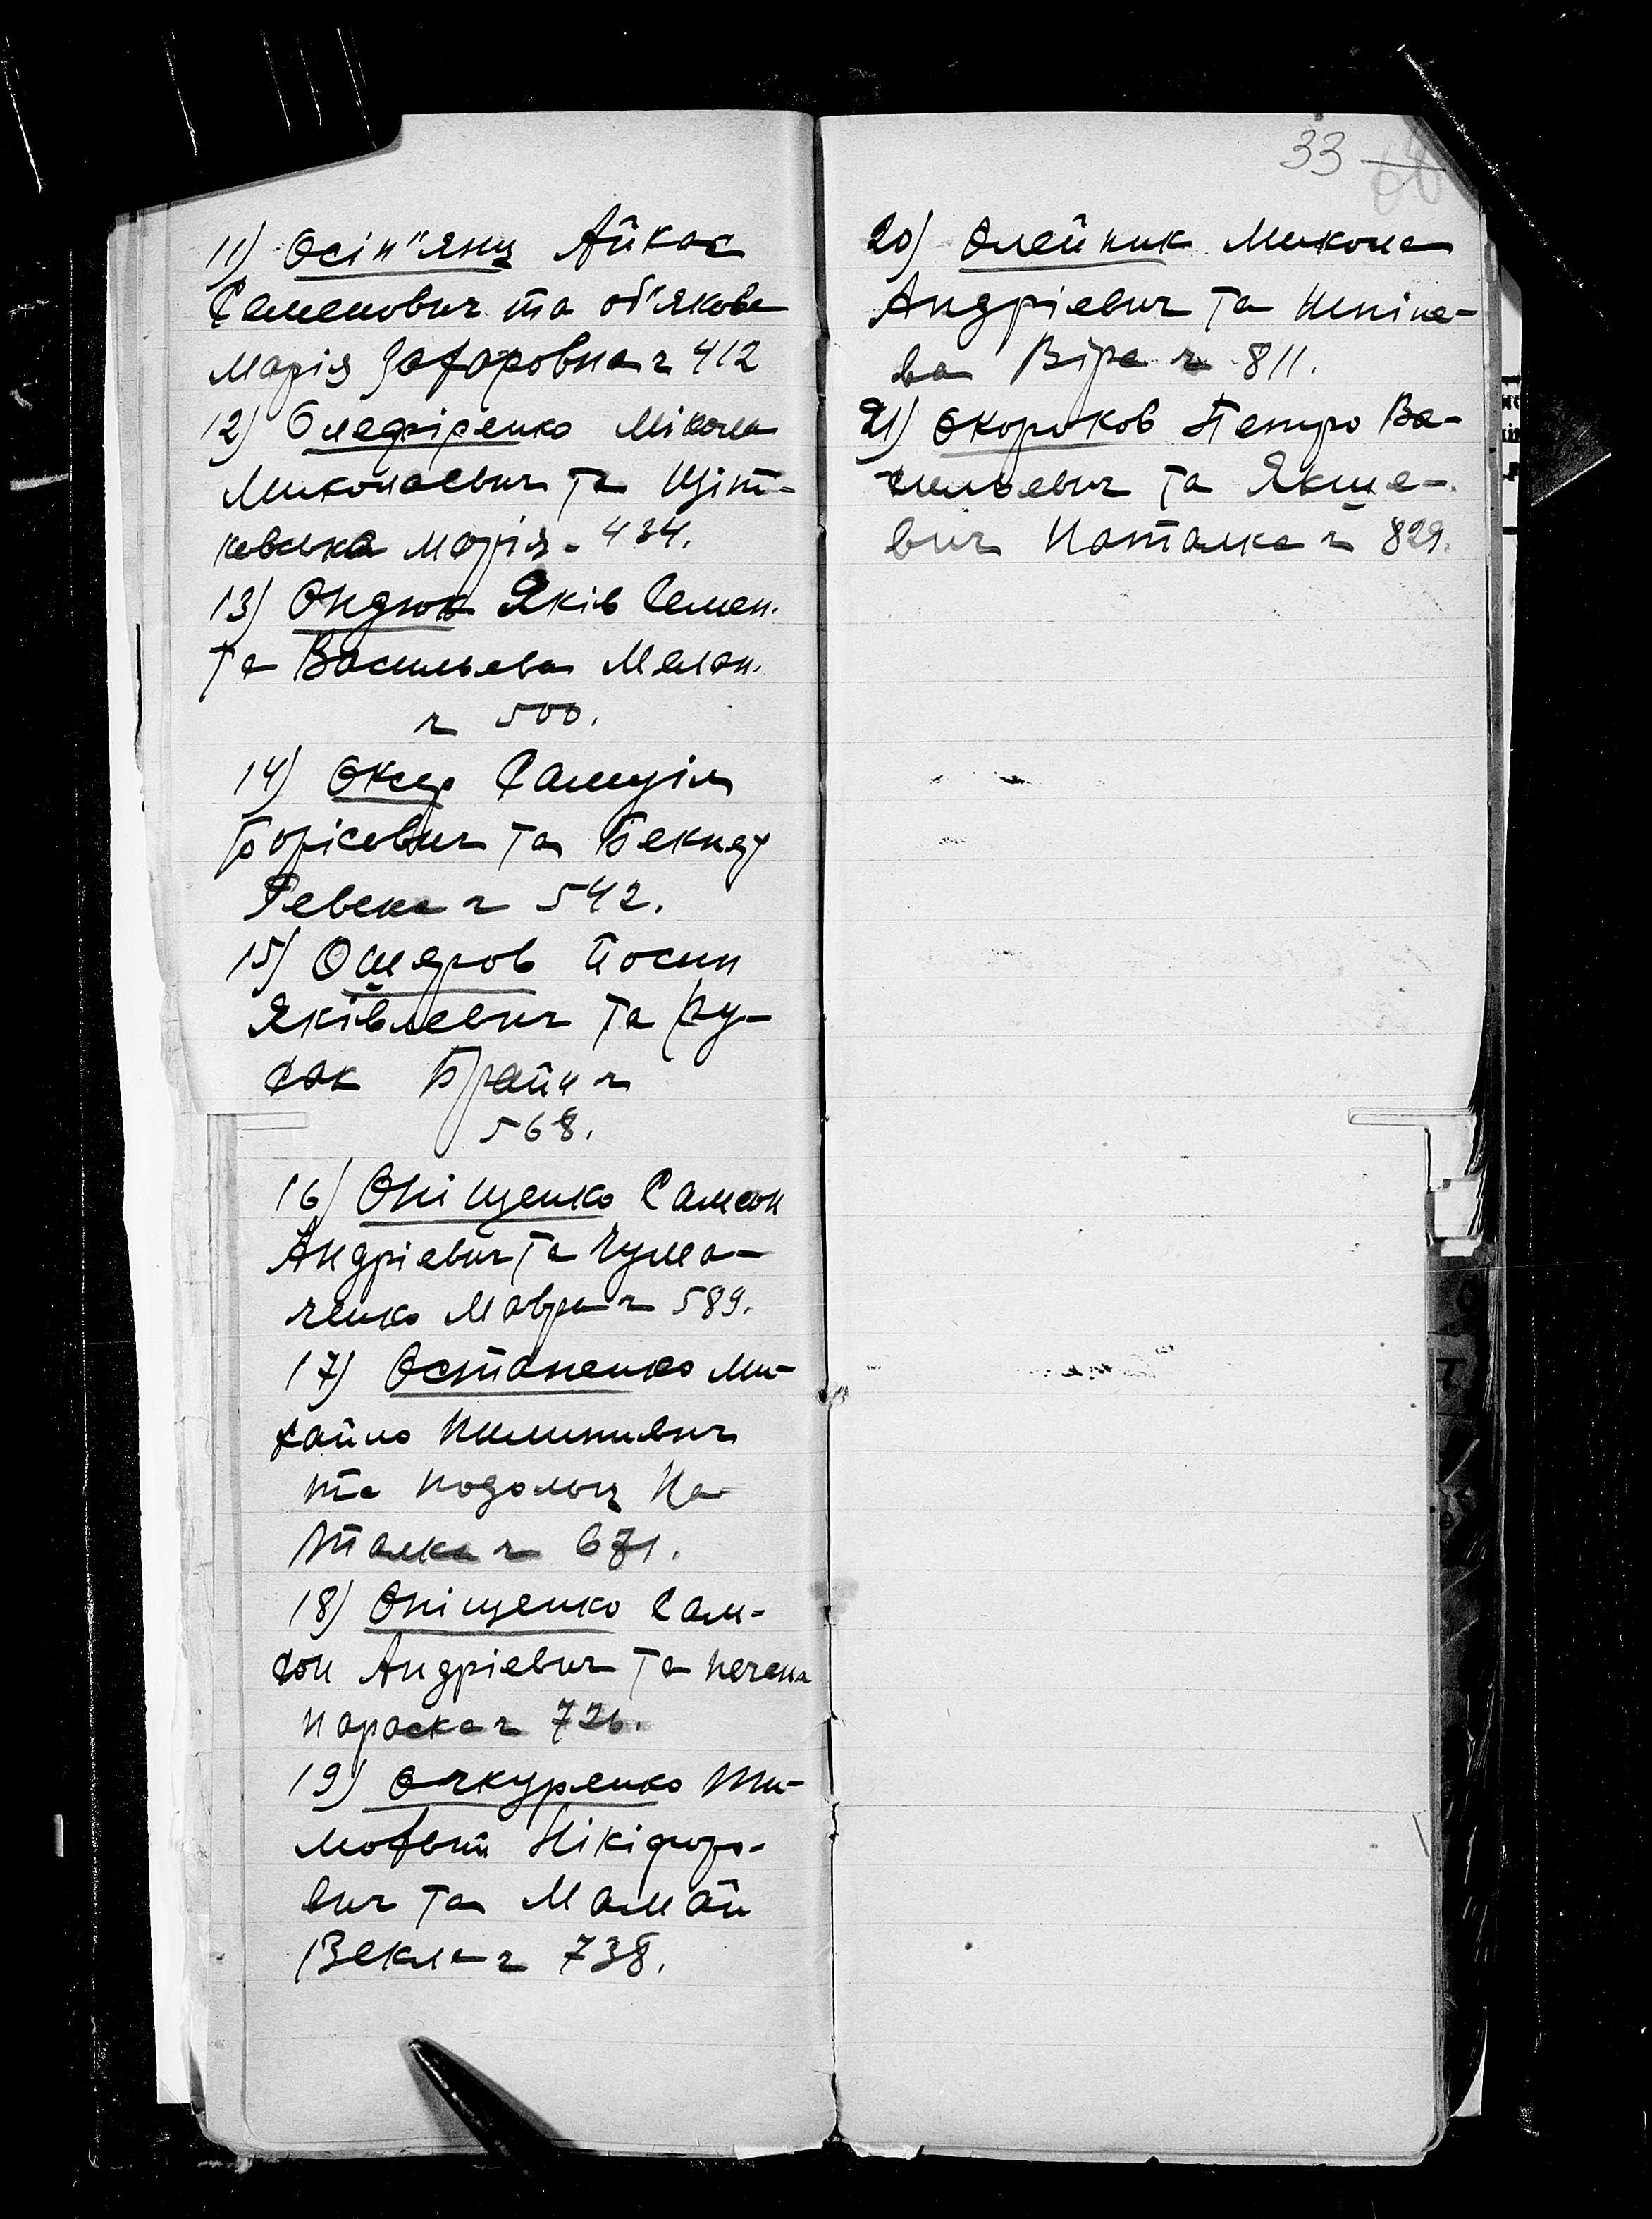 11) Осіп"янц Айкас
Семенович та об'якова
Марія Захаровна ч 412
12) Олефіренко Мікола
Миколаевич та Щіт-
ковська Марія - 434.
13) Ондюк Яків Семен.
та Васильева Мелан.
ч 500.
14) Оксер Самуіл
Борісович та Бекнер
Ревека ч 542.
15) Ошеров Йосип
Яківлевич та Ру-
сак Брайн ч
568.
16) Оніщенко Самсон
Андріевич та Чума-
ченко Мавра ч 589.
17) Остапенко Ми-
хайло Пилипивич
та Подолян На
талка ч 671.
18) Оніщенко Сам-
сон Андріевич та
Параска ч 726.
19) Очкуренко Ти-
мофій Нікіфоро-
вич та Мамай
Векла ч 738.
33
20) Олейник Микола
Андріевич та
ва Віра ч 811.
21) Окороков Петро Ва-
сильевич та Якше-
вич Наталка ч 829.